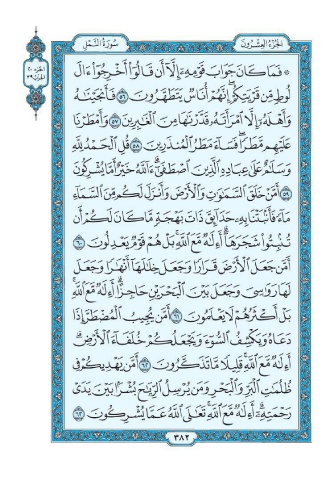 الجزء العشرون
سورة النمل
۞ فَمَا كَانَ جَوَابَ قَوْمِهِ إِلَّا أَن قَالُوا أَخْرِجُوا ءَالَ
لُوطٍ مِّن قَرْيَتِكُمْ إِنَّهُمْ أُنَاسٌ يَتَطَهَّرُونَ ٥٦ فَأَنجَيْنَٰهُ
وَأَهْلَهُ إِلَّا امْرَأَتَهُ قَدَّرْنَٰهَا مِنَ الْغَٰبِرِينَ ٥٧ وَأَمْطَرْنَا
عَلَيْهِم مَّطَرًا فَسَاءَ مَطَرُ الْمُنذَرِينَ ٥٨ قُلِ الْحَمْدُ لِلَّهِ
وَسَلَٰمٌ عَلَىٰ عِبَادِهِ الَّذِينَ اصْطَفَىٰ ءَاللَّهُ خَيْرٌ أَمَّا يُشْرِكُونَ
٥٩ أَمَّنْ خَلَقَ السَّمَٰوَٰتِ وَالْأَرْضَ وَأَنزَلَ لَكُم مِّنَ السَّمَاءِ
مَاءً فَأَنبَتْنَا بِهِ حَدَائِقَ ذَاتَ بَهْجَةٍ مَّا كَانَ لَكُمْ أَن
تُنبِتُوا شَجَرَهَا أَءِلَٰهٌ مَّعَ اللَّهِ بَلْ هُمْ قَوْمٌ يَعْدِلُونَ ٦٠
أَمَّن جَعَلَ الْأَرْضَ قَرَارًا وَجَعَلَ خِلَٰلَهَا أَنْهَٰرًا وَجَعَلَ
لَهَا رَوَٰسِيَ وَجَعَلَ بَيْنَ الْبَحْرَيْنِ حَاجِزًا أَءِلَٰهٌ مَّعَ اللَّهِ
بَلْ أَكْثَرُهُمْ لَا يَعْلَمُونَ ٦١ أَمَّن يُجِيبُ الْمُضْطَرَّ إِذَا
دَعَاهُ وَيَكْشِفُ السُّوءَ وَيَجْعَلُكُمْ خُلَفَاءَ الْأَرْضِ
أَءِلَٰهٌ مَّعَ اللَّهِ قَلِيلًا مَّا تَذَكَّرُونَ ٦٢ أَمَّن يَهْدِيكُمْ فِي
ظُلُمَٰتِ الْبَرِّ وَالْبَحْرِ وَمَن يُرْسِلُ الرِّيَٰحَ بُشْرًا بَيْنَ يَدَيْ
رَحْمَتِهِ أَءِلَٰهٌ مَّعَ اللَّهِ تَعَٰلَى اللَّهُ عَمَّا يُشْرِكُونَ ٦٣
٣٨٢